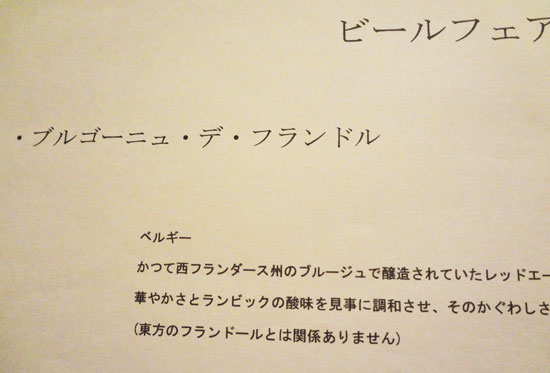 ビールフェア
・ブルゴーニュ・デ・フランドル
ベルギー
かつて西フランダース州のブルージュで醸造されていたレッドエー
華やかさとランビックの酸味を見事に調和させ、そのかぐわしさ
(東方のフランドールとは関係ありません)